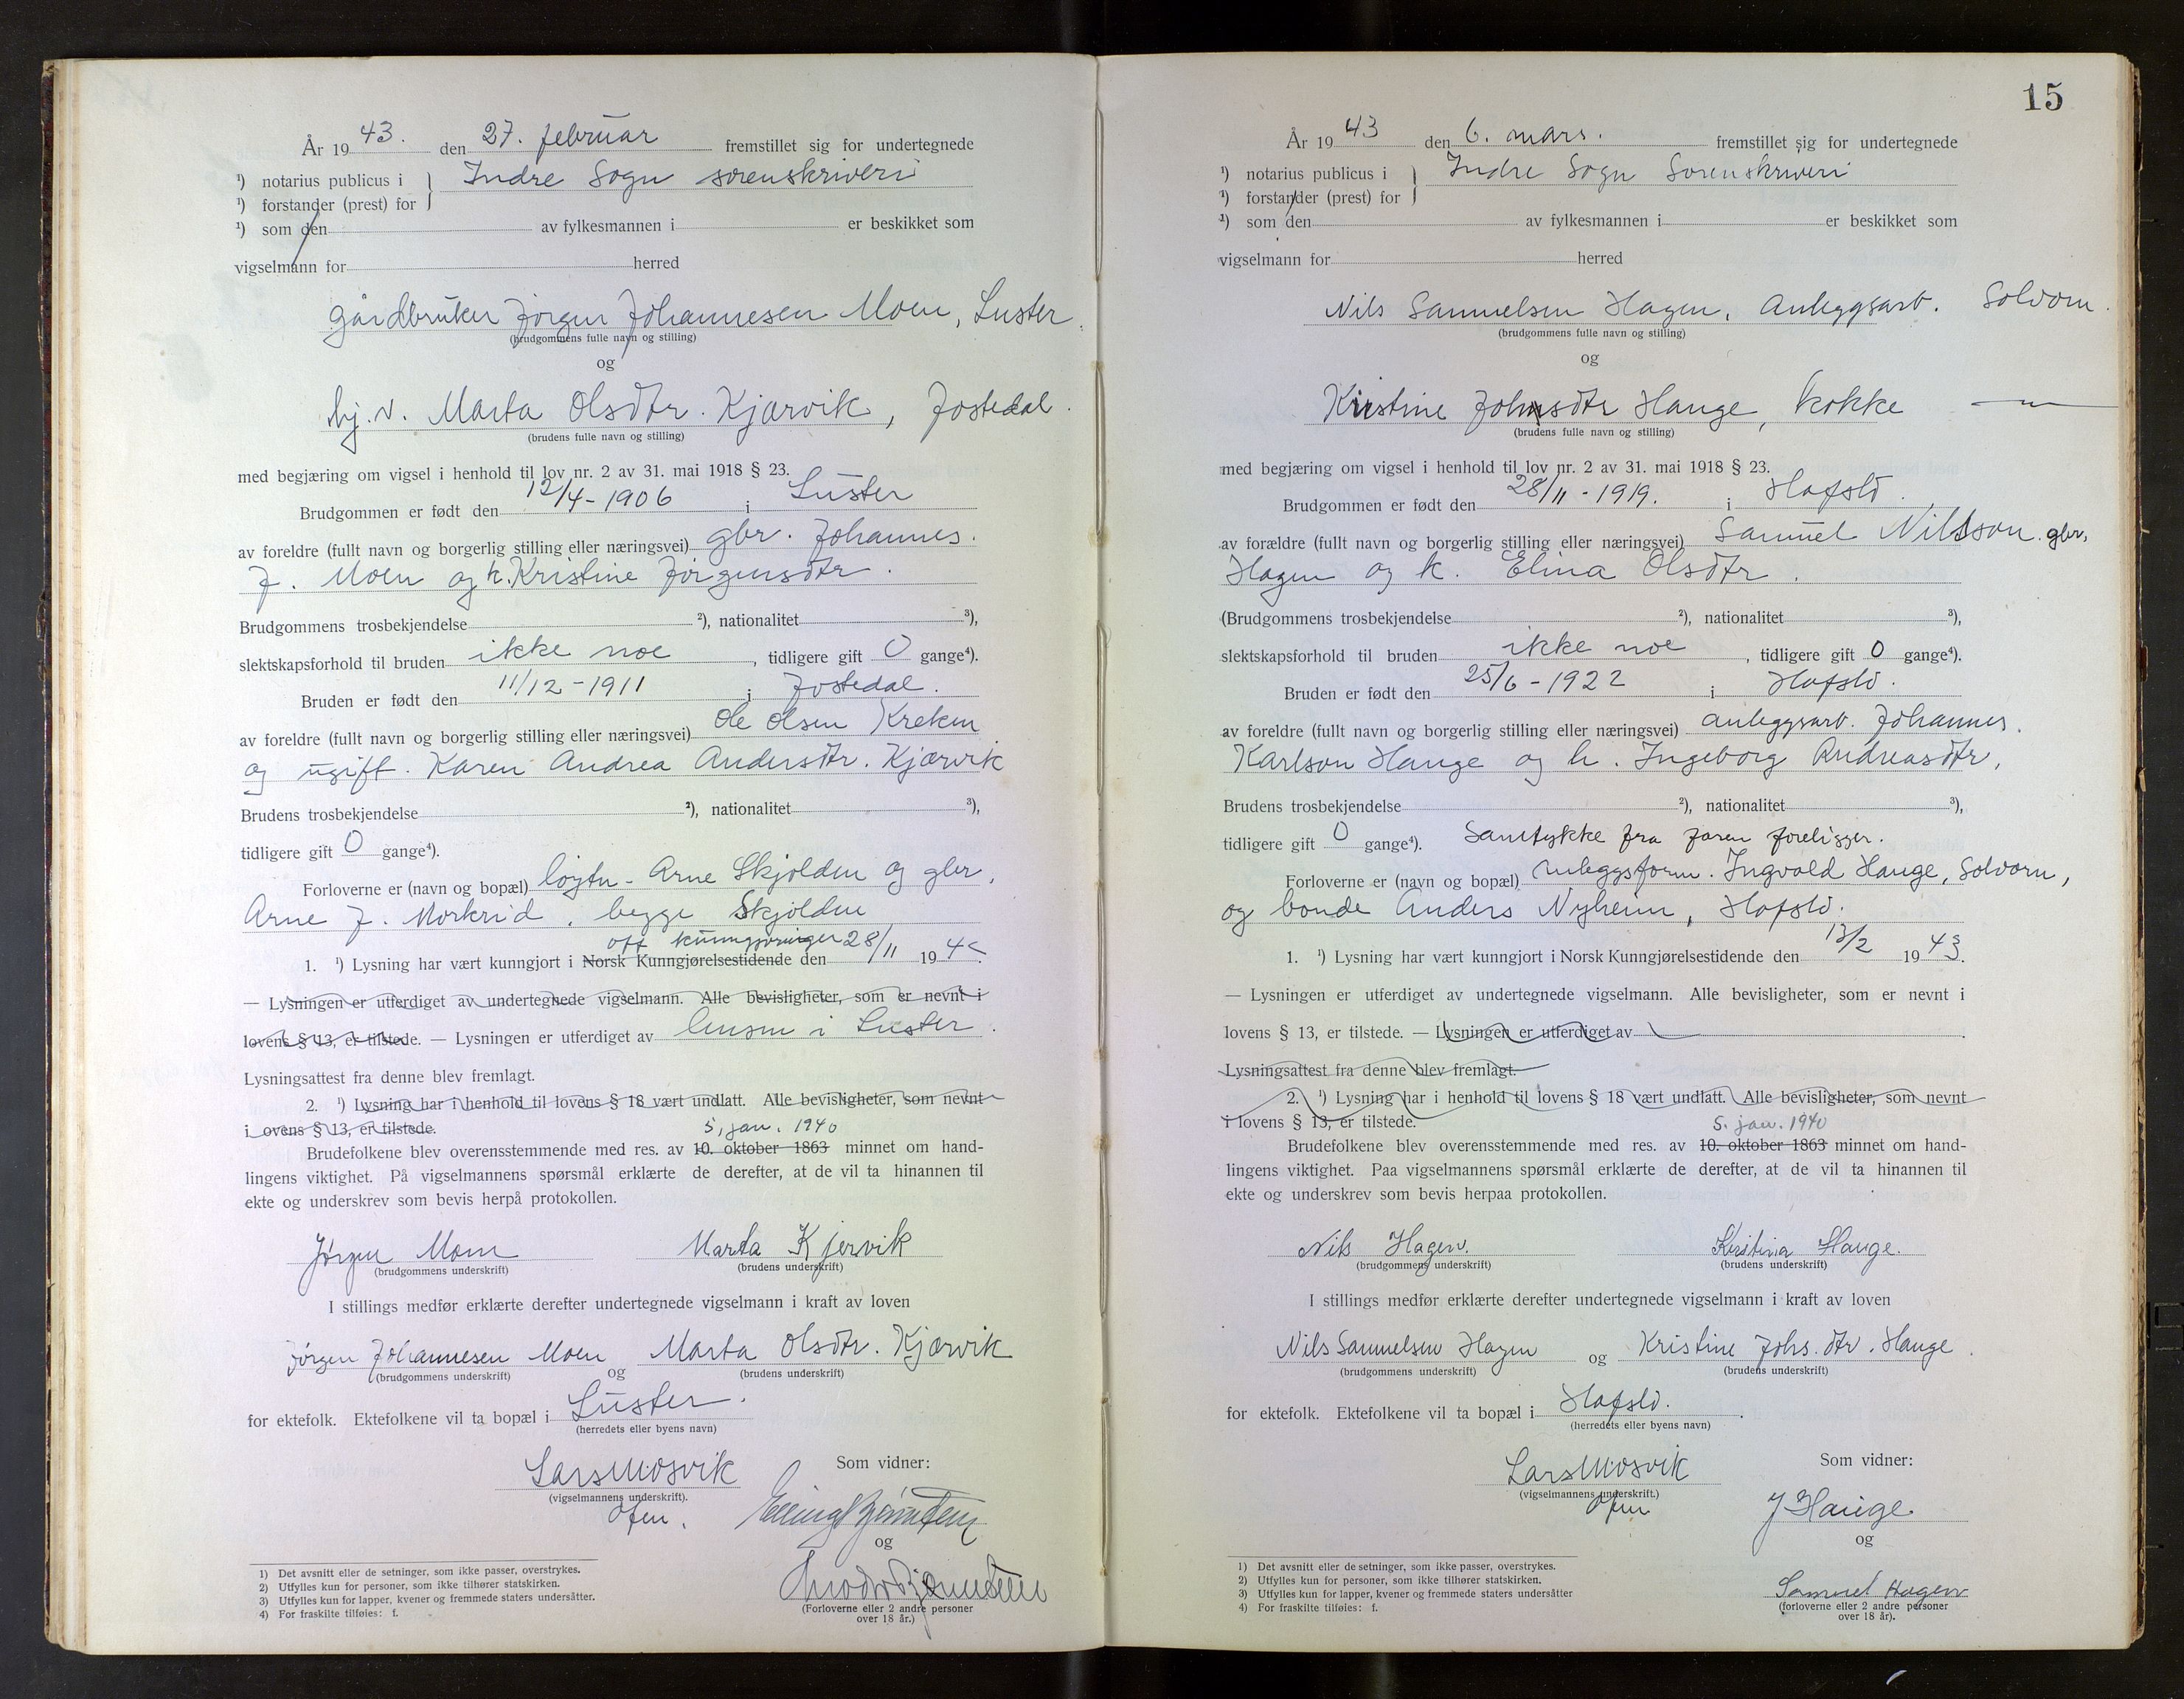 År 19 43. den 27. februar fremstillet sig for undertegnede
¹) notarius publicus i } Indre Sogn sorenskriveri
¹) forstander (prest) for
¹) som den av fylkesmannen i er beskikket som
vigselmann for herred
gårdbruker Jørgen Johannesen Moen, Luster.
(brudgommens fulle navn og stilling)
og
hj.v. Marta Olsdtr. Kjærvik, Jostedal.
(brudens fulle navn og stilling)
med begjæring om vigsel i henhold til lov nr. 2 av 31. mai 1918 § 23.
Brudgommen er født den 12/4-1906 i Luster
av foreldre (fullt navn og borgerlig stilling eller næringsvei) gbr. Johannes.
J. Moen og h. Kristine Jørgensdtr.
Brudgommens trosbekjendelse ²), nationalitet ³),
slektskapsforhold til bruden ikke noe, tidligere gift 0 gange⁴).
Bruden er født den 11/12-1911 i Jostedal.
av foreldre (fullt navn og borgerlig stilling eller næringsvei) Ole Olsen Kreken
og ugift. Karen Andrea Andersdtr. Kjærvik
Brudens trosbekjendelse ²), nationalitet ³),
tidligere gift 0 gange⁴).
Forloverne er (navn og bopæl) løytn. Arne Skjolden og gbr.
Arne J. Mørkrid, begge Skjolden
off kunngjøringer
1. ¹) Lysning har vært kunngjort i Norsk Kunngjørelsestidende den 28/11 19 42.
— Lysningen er utferdiget av undertegnede vigselmann. Alle bevisligheter, som er nevnt i
lovens § 13, er tilstede. — Lysningen er utferdiget av lensm i Luster.
Lysningsattest fra denne blev fremlagt.
2. ¹) Lysning har i henhold til lovens § 18 vært undlatt. Alle bevisligheter, som nevnt
i ovens § 13, er tilstede.
5. jan. 1940
Brudefolkene blev overensstemmende med res. av 10. oktober 1863 minnet om hand-
lingens viktighet. På vigselmannens spørsmål erklærte de derefter, at de vil ta hinannen til
ekte og underskrev som bevis herpå protokollen.
Jørgen Moen Marta Kjervik
(brudgommens underskrift) (brudens underskrift)
I stillings medfør erklærte derefter undertegnede vigselmann i kraft av loven
Jørgen Johannesen Moen og Marta Olsdtr. Kjærvik
(brudgommens underskrift) (brudens underskrift)
for ektefolk. Ektefolkene vil ta bopæl i Luster.
(herredets eller byens navn)
Lars Mosvik
(vigselmannens underskrift).
ofm.
Som vidner:
og
(Forloverne eller 2 andre personer
over 18 år.)
1) Det avsnitt eller de setninger, som ikke passer, overstrykes.
2) Utfylles kun for personer, som ikke tilhører statskirken.
3) Utfylles kun for lapper, kvener og fremmede staters undersåtter.
4) For fraskilte tilføies: f.
15
År 19 43 den 6. mars. fremstillet sig for undertegnede
¹) notarius publicus i } Indre Sogn Sorenskriveri
¹) forstander (prest) for
¹) som den av fylkesmannen i er beskikket som
vigselmann for herred
Nils Samuelsen Hagen, Anleggsarb. Solvorn.
(brudgommens fulle navn og stilling)
og
Kristine Johnsdtr Hauge, kokke — " —
(brudens fulle navn og stilling)
med begjæring om vigsel i henhold til lov nr. 2 av 31. mai 1918 § 23.
Brudgommen er født den 28/11-1919. i Hafslo.
av forældre (fullt navn og borgerlig stilling eller næringsvei) Samuel Nilsson. gbr,
Hagen og h. Elina Olsdtr.
(Brudgommens trosbekjendelse ²), nationalitet ³),
slektskapsforhold til bruden ikke noe, tidligere gift 0 gange⁴).
Bruden er født den 25/6-1922 i Hafslo.
av foreldre (fullt navn og borgerlig stilling eller næringsvei) anleggsarb. Johannes.
Karlson Hauge og h. Ingeborg Andreasdtr,
Brudens trosbekjendelse ²), nationalitet ³),
tidligere gift 0 gange⁴). Samtykke fra faren foreligger.
Forloverne er (navn og bopæl) anleggsform. Ingvald Hauge, Solvorn,
og bonde Anders Nyheim, Hafslo.
1. ¹) Lysning har vært kunngjort i Norsk Kunngjørelsestidende den 13/2 19 43.
— Lysningen er utferdiget av undertegnede vigselmann. Alle bevisligheter, som er nevnt i
lovens § 13, er tilstede. — Lysningen er utferdiget av
Lysningsattest fra denne blev fremlagt.
2. ¹) Lysning har i henhold til lovens § 18 vært undlatt. Alle bevisligheter, som nevnt
i lovens § 13, er tilstede.
5. jan. 1940
Brudefolkene blev overensstemmende med res. av 10. oktober 1863 minnet om hand-
lingens viktighet. Paa vigselmannens spørsmål erklærte de derefter, at de vil ta hinannen til
ekte og underskrev som bevis herpaa protokollen.
Nils Hagen. Kristina Hauge.
(brudgommens underskrift) (brudens underskrift)
I stillings medfør erklærte derefter undertegnede vigselmann i kraft av loven
Nils Samuelsen Hagen og Kristine Johs. dtr. Hauge.
(brudgommens underskrift) (brudens underskrift)
for ektefolk. Ektefolkene vil ta bopæl i Hafslo.
(herredets eller byens navn)
Lars Mosvik
(vigselmannens underskrift.)
ofm
Som vidner:
J Hauge.
og
Samuel Hagen
(forloverne eller 2 andre personer
over 18 år).
1) Det avsnitt eller de setninger, som ikke passer, overstrykes.
2) Utfylles kun for personer, som ikke tilhører statskirken.
3) Utfylles kun for lapper, kvener og fremmede staters undersåtter
4) For fraskilte tilføies: f.